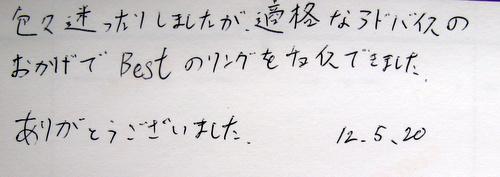 色々迷ったりしましたが、適格なアドバイスの
おかげで Best のリングをチョイスできました。
ありがとうございました。 12.5.20